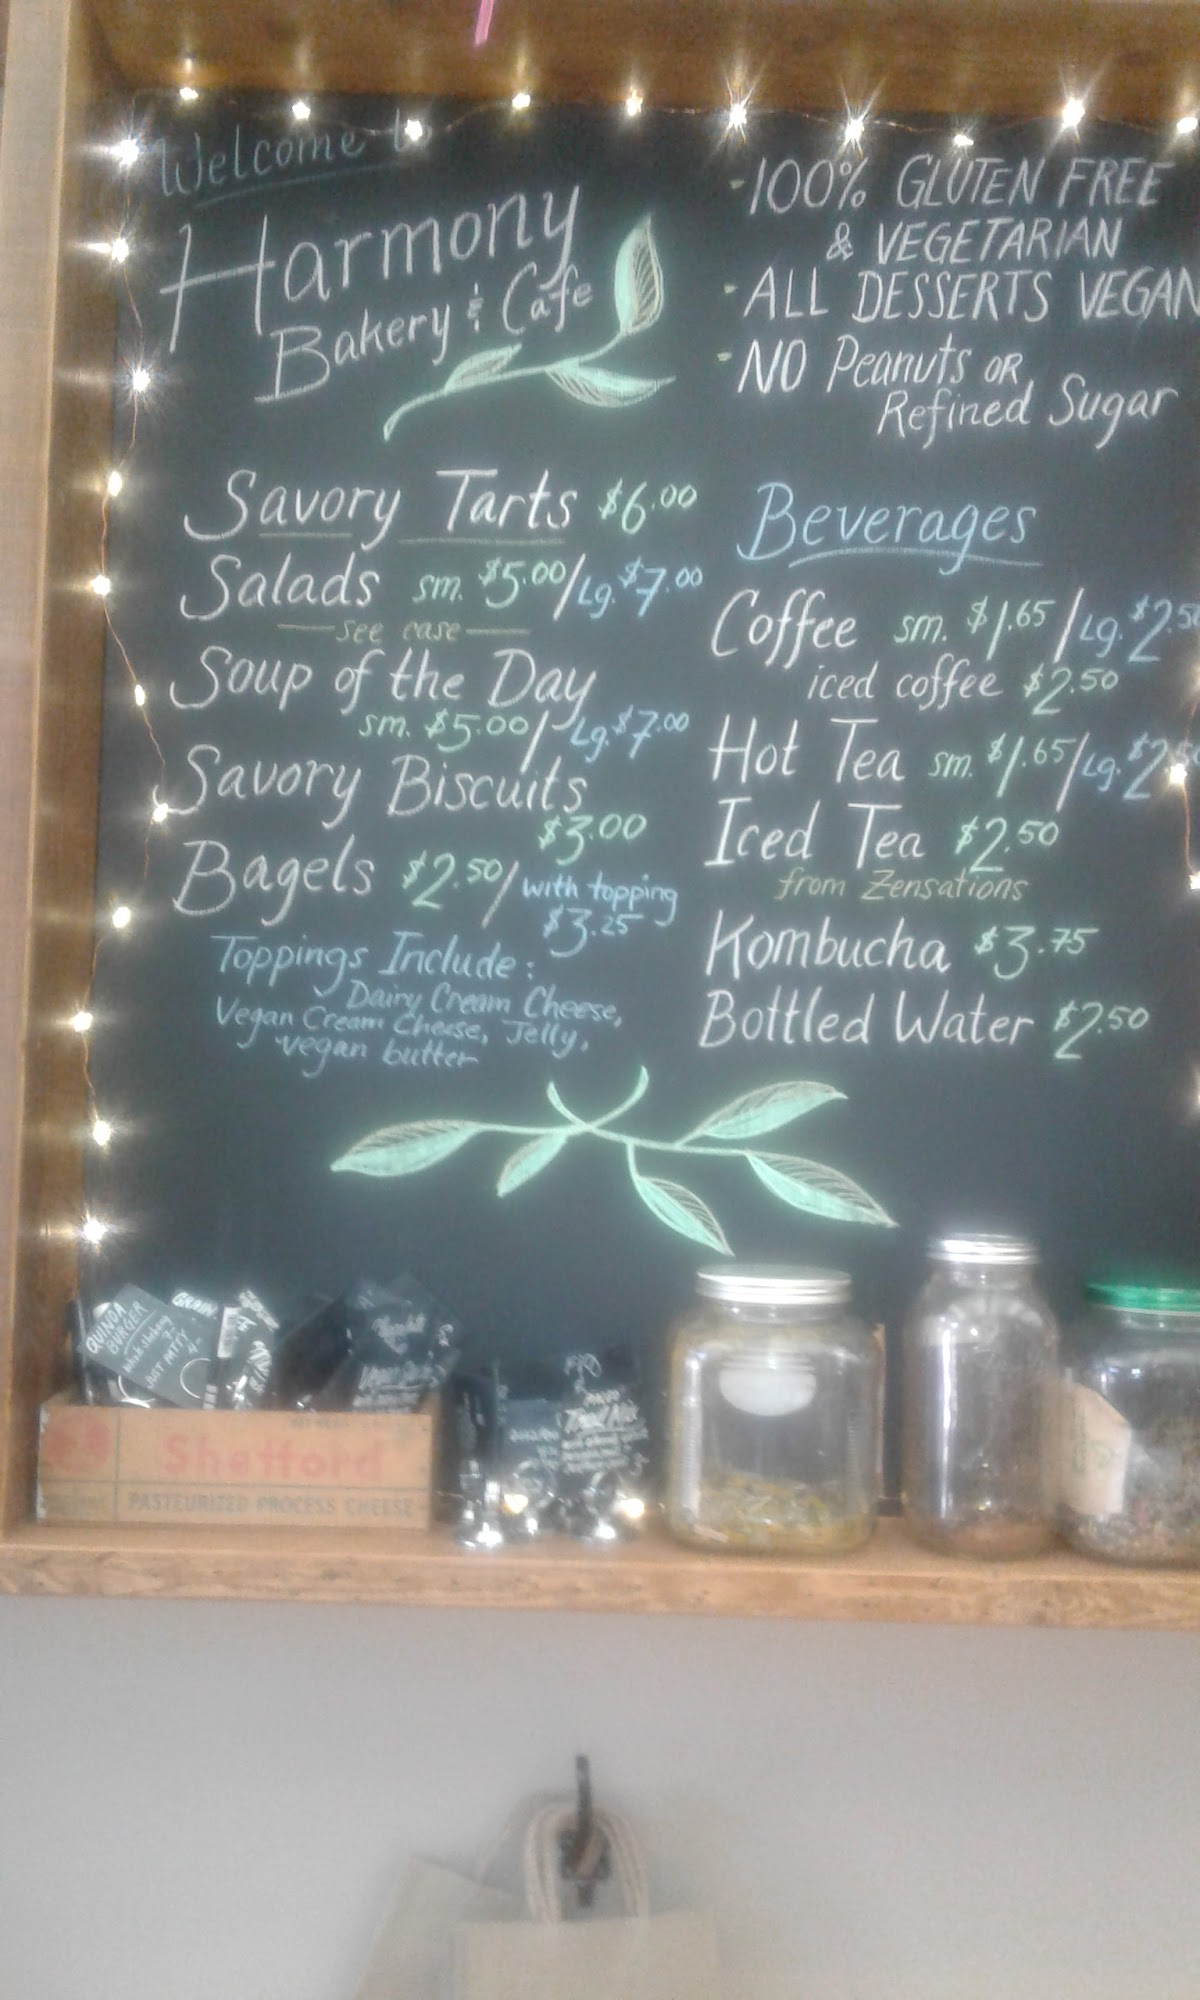 Welcome to
Harmony
Bakery & Cafe
-100% GLUTEN FREE
& VEGETARIAN
-ALL DESSERTS VEGAN
-NO Peanuts OR
Refined Sugar
Savory Tarts $6.00
Salads sm. $5.00/Lg. $7.00
see case
Soup of the Day
sm. $5.00/Lg. $7.00
Savory Biscuits
$3.00
Bagels $2.50/with topping
$3.25
Toppings Include:
Dairy Cream Cheese,
Vegan Cream Cheese, Jelly,
vegan butter
Beverages
Coffee sm. $1.65/Lg. $2.50
iced coffee $2.50
Hot Tea sm. $1.65/Lg. $2.50
Iced Tea $2.50
from Zensations
Kombucha $3.75
Bottled Water $2.50
QUINOA
BURGER
JUST PATTY
GRAIN
Trail Mix
Shefford
PASTEURIZED PROCESS CHEESE